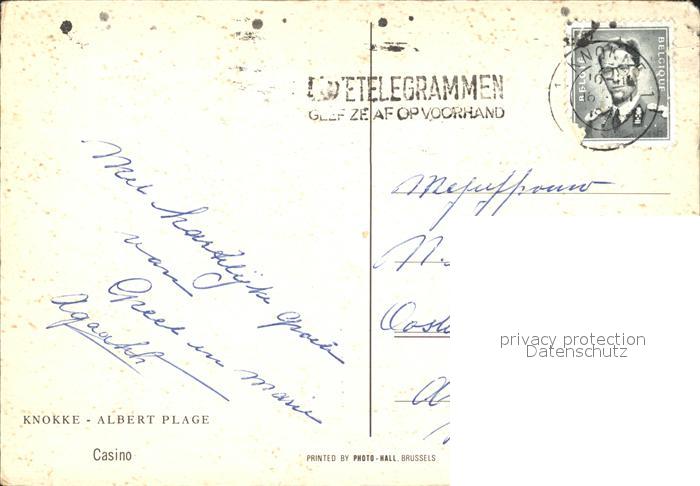 GEEF ZE AF OP VOORHAND
KNOKKE
1
1
BELGIE BELGIQUE
Met hartelijke groeten
van
Greet en Marie
Agaath
Mejuffrouw
N.
Oost
A
privacy protection
Datenschutz
KNOKKE - ALBERT PLAGE
Casino
PRINTED BY PHOTO-HALL. BRUSSELS